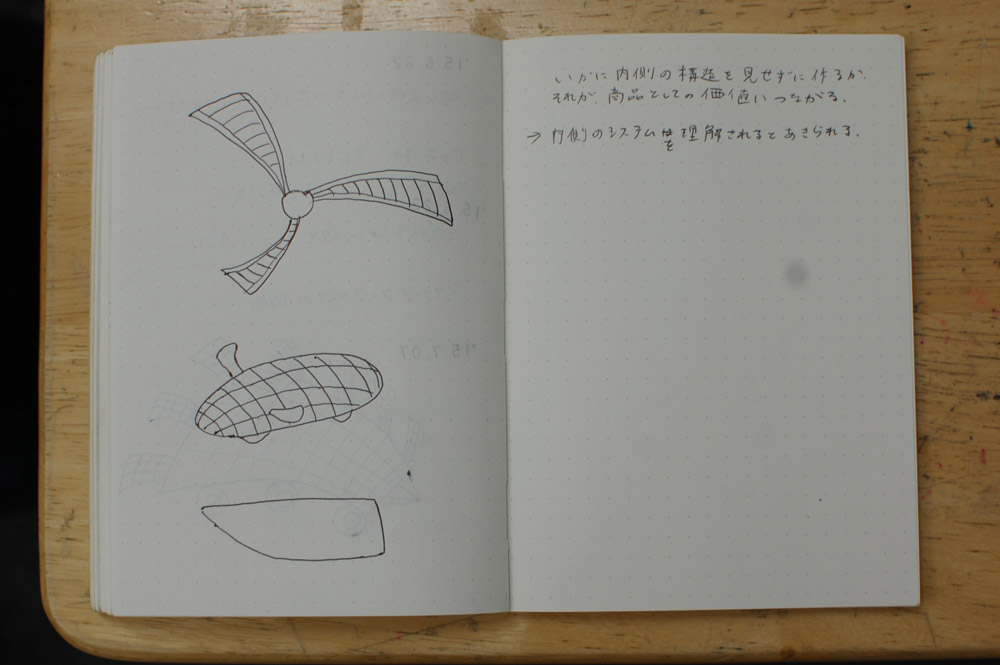 いかに内側の構造を見せずに作るか.
それが、商品としての価値いつながる.
→ 内側のシステムを理解されるとあきられる.